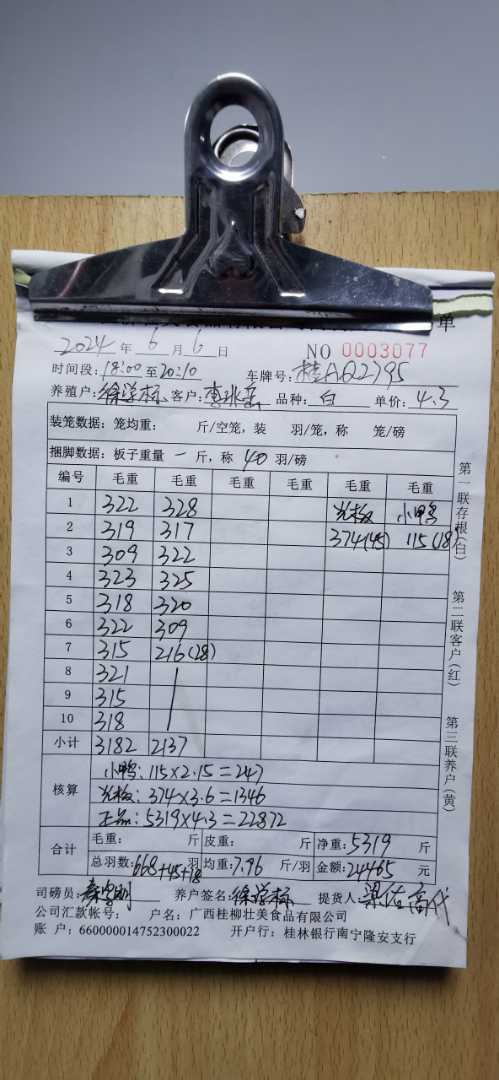 单
2024年6月6日 NO 0003077
时间段:18:00至20:10 车牌号:桂AQ2795
养殖户:徐学标 客户: 品种:白 单价:4.3
装笼数据:笼均重: 斤/空笼,装 羽/笼,称 笼/磅
捆脚数据:板子重量 一 斤,称 40 羽/磅
编号 毛重 毛重 毛重 毛重 毛重 毛重
1 322 328 光板 小鸭
2 319 317 374(45) 115(18)
3 309 322
4 323 325
5 318 320
6 322 309
7 315 216(28)
8 321
9 315
10 318
小计 3182 2137
核算 小鸭:115×2.15=247
光板:374×3.6=1346
正品:5319×4.3=22872
合计 毛重: 斤 皮重: 斤 净重:5319 斤
总羽数:668+45+18 羽 均重:7.96 斤/羽 金额:24465 元
司磅员: 养户签名:徐学标 提货人:
公司汇款帐号: 户名:广西桂柳壮美食品有限公司
账 户:660000014752300022 开户行:桂林银行南宁隆安支行
第一联存根(白)
第二联客户(红)
第三联养户(黄)